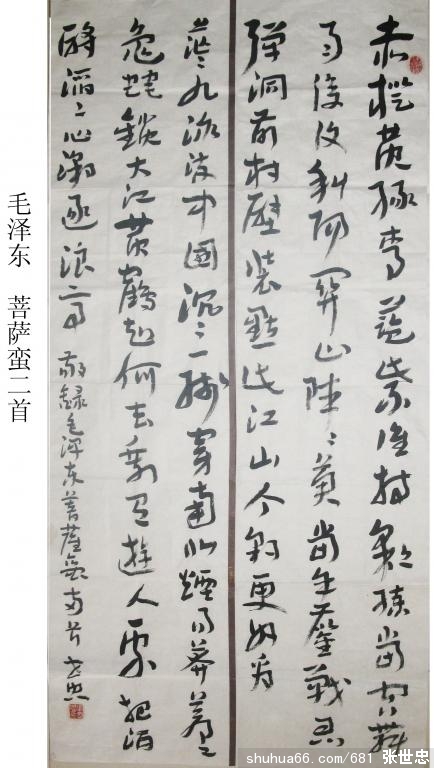 赤橙黄绿青蓝紫谁持彩练当空舞
雨後復斜阳関山阵々苍当年鏖战急
弹洞前村壁装點此江山今朝更好看
茫々九派流中國沉々一线穿南北煙雨莽苍々
龟蛇锁大江黄鹤知何去剩有遊人處把酒
酹滔々心潮逐浪高 敬録毛泽东菩萨蛮两首 世忠
毛泽东 菩萨蛮二首
shuhua66.com/681 张世忠